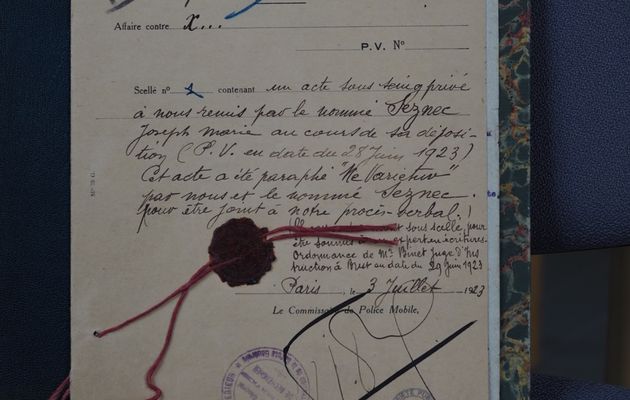 Affaire contre X...
P.V. Nº
Scellé nº 1 contenant un acte sous seing privé
à nous remis par le nommé Seznec
Joseph Marie au cours de sa déposi-
tion (P.V. en date du 28 Juin 1923)
Cet acte a été paraphé "Ne Varietur"
par nous et le nommé Seznec.
pour être joint à notre procès-verbal.
sous scellé, pour
être soumis expert en écritures.
Ordonnance de Mr Binet Juge d'Ins
truction à Brest en date du 29 Juin 1923
Paris, le 3 Juillet 1923
Le Commissaire de Police Mobile,